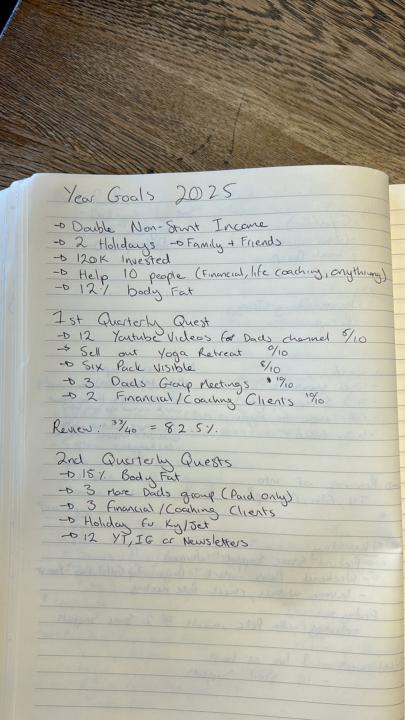 Year Goals 2025
→ Double Non-Stunt Income
→ 2 Holidays → Family + Friends
→ 120K Invested
→ Help 10 people (Financial, life coaching, anything)
→ 12% body Fat
1st Quarterly Quest
→ 12 Youtube Videos for Dads channel 5/10
→ Sell out Yoga Retreat 0/10
→ Six Pack Visible 8/10
→ 3 Dads Group Meetings 10/10
→ 2 Financial/Coaching Clients 10/10
Review: 33/40 = 82.5%.
2nd Quarterly Quests
→ 15% Body Fat
→ 3 More Dads group (Paid only)
→ 3 Financial/Coaching Clients
→ Holiday for Ky/Jet
→ 12 YT, IG or Newsletters